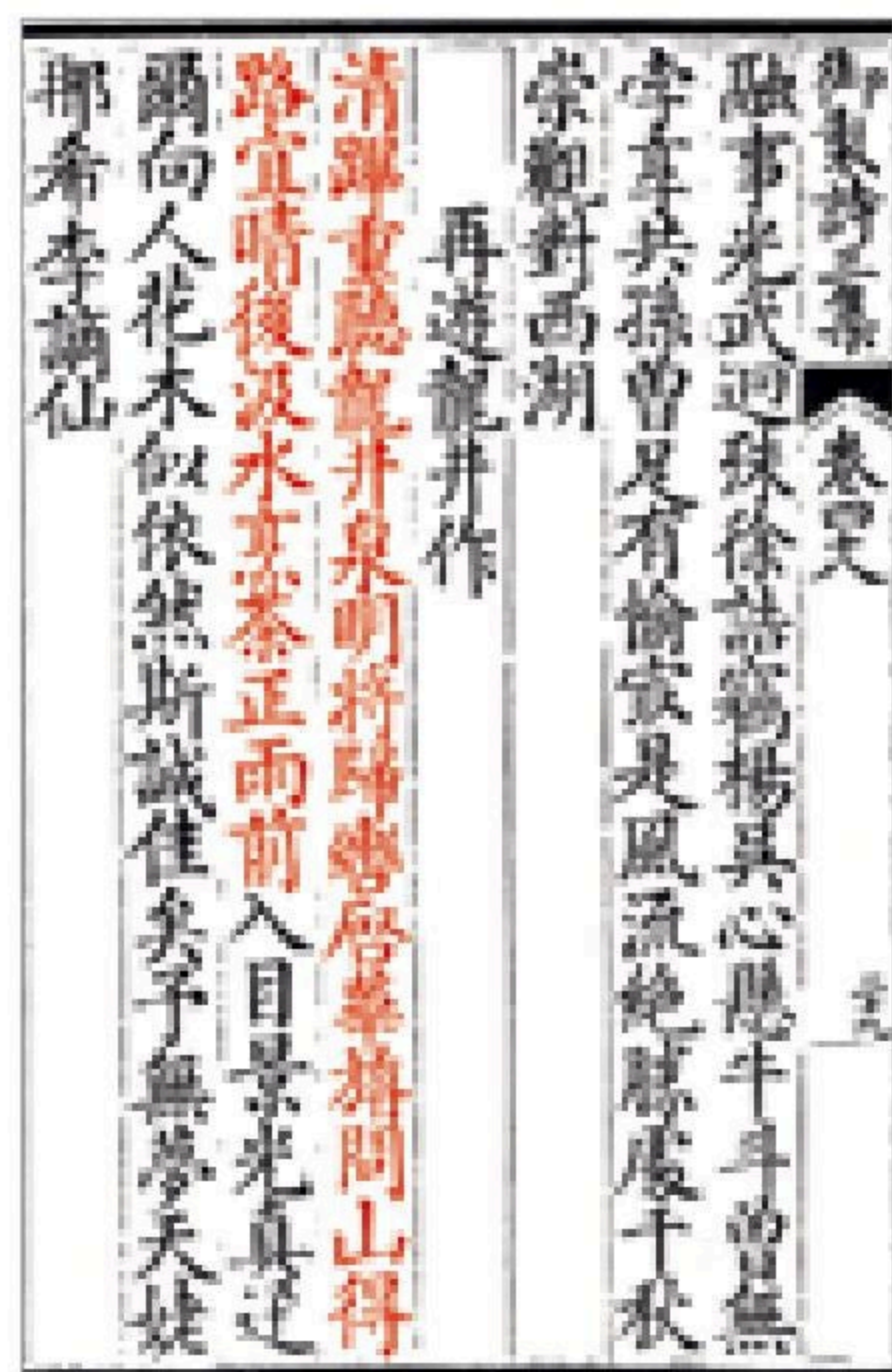 御製詩三集 卷
事光武迥殊徐其心牛斗曾無
共孫曾足有是風流絶勝處千秋
崇對西湖
再遊龍井作
清蹕重聽龍井泉明將歸轡啓華旃問山得
路宜晴後汲水烹茶正雨前入目景光真迅
爾向人花木似依然斯誠佳矣予無夢天姥
那希李謫仙